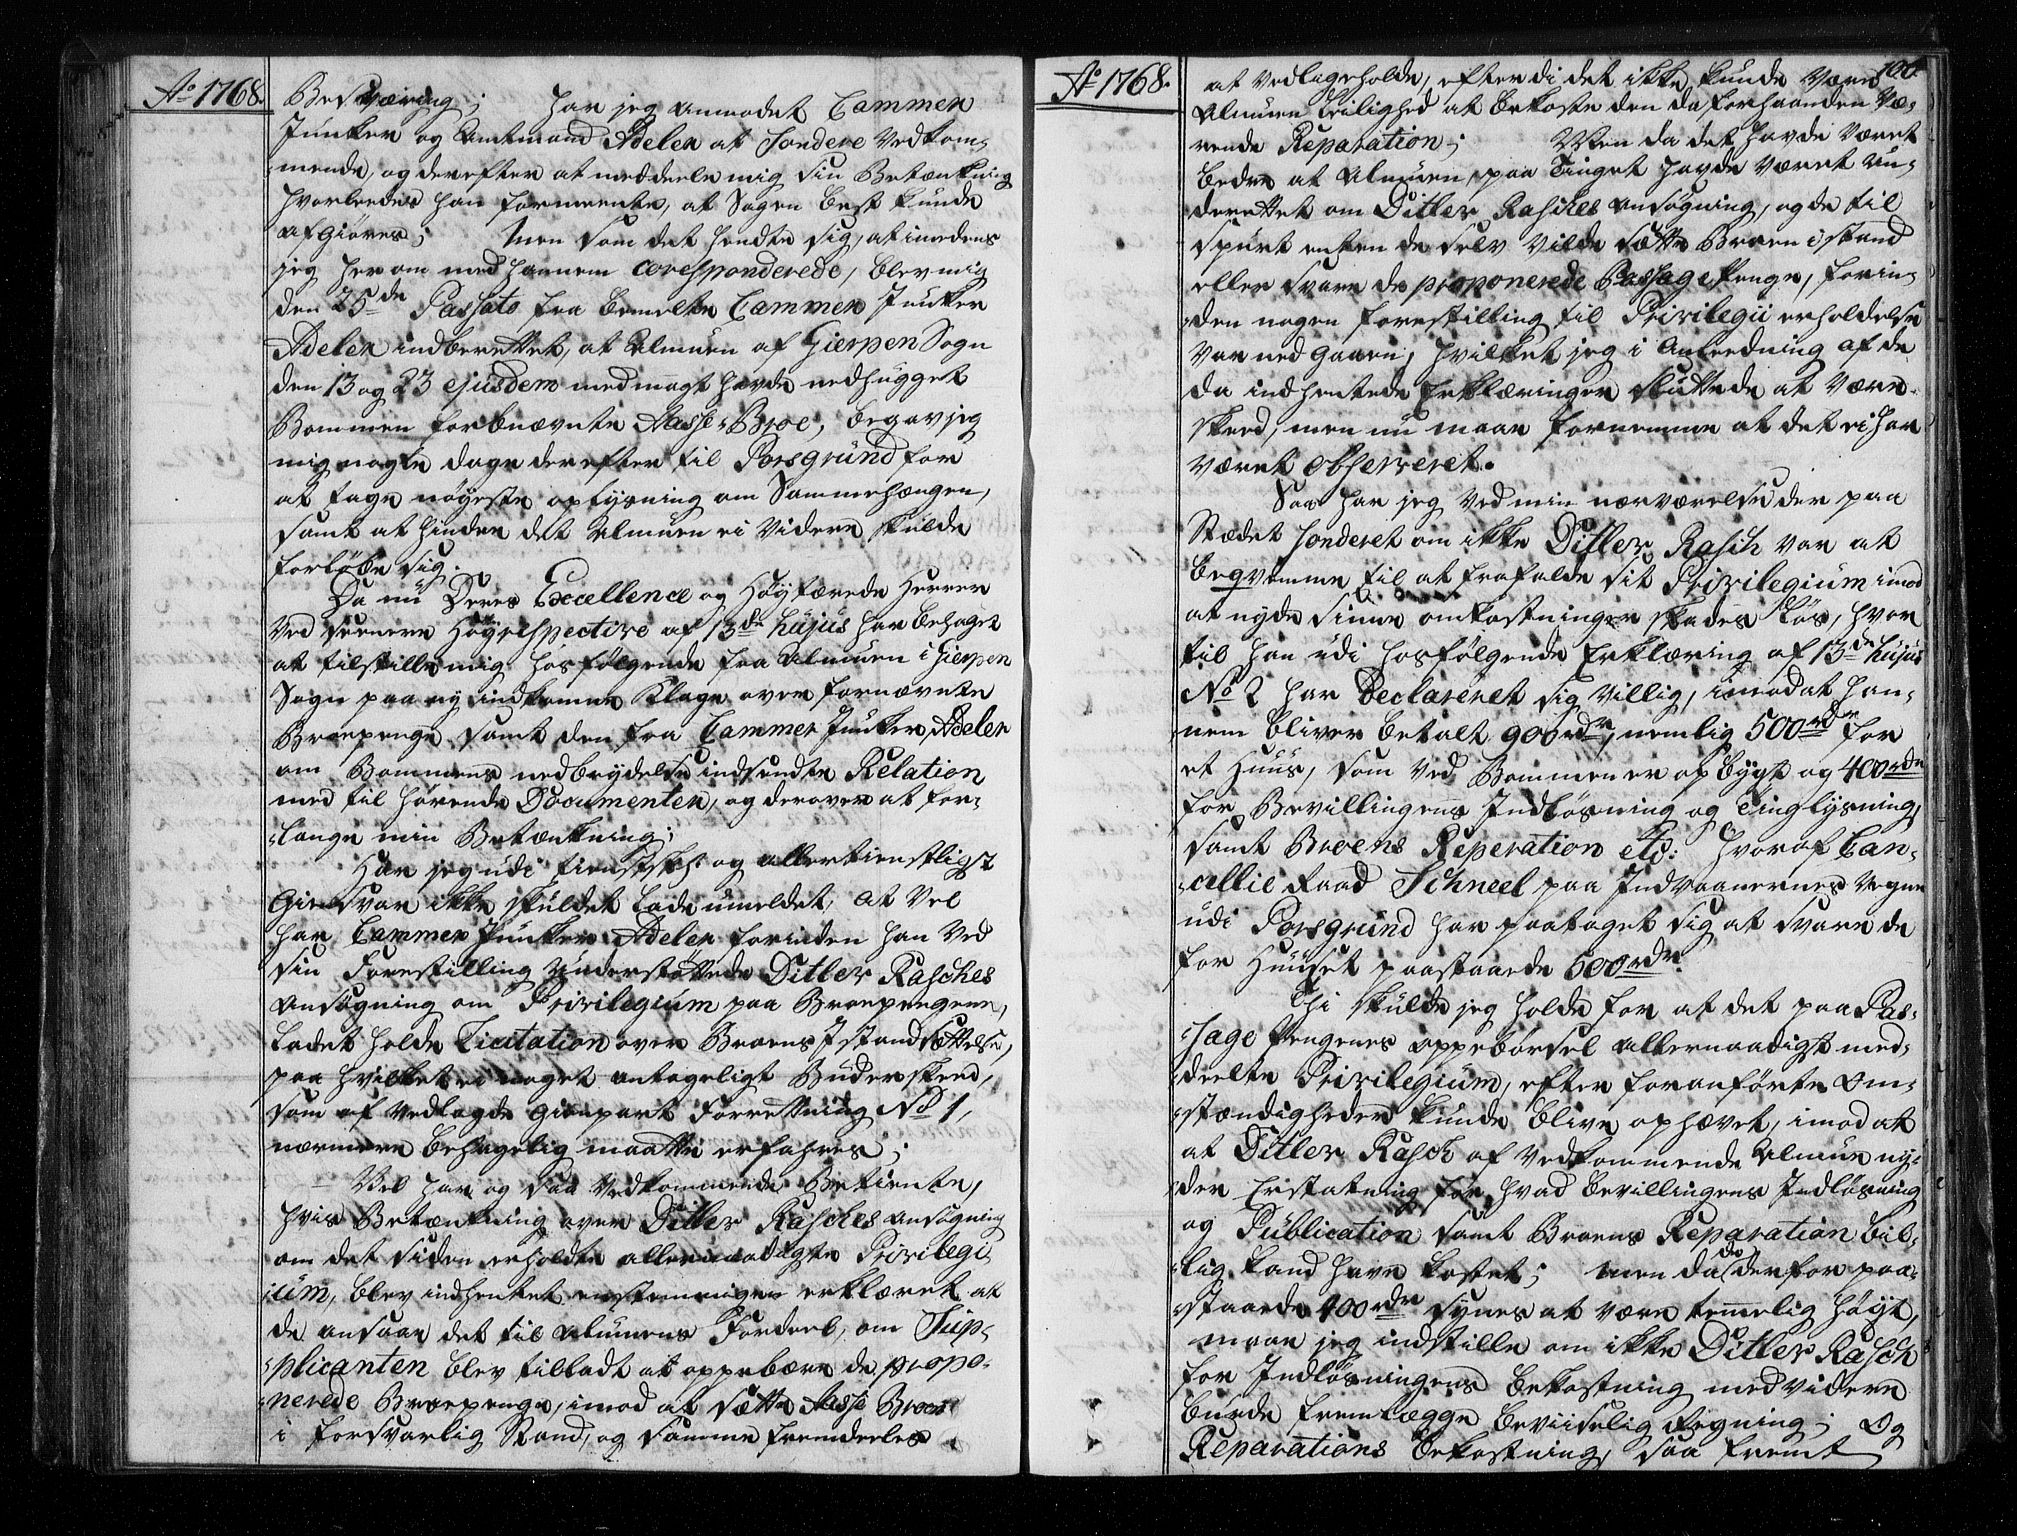 Ao 1768.
Besværing; har jeg anmodet Cammer
Junker og Amtmand Adeler at Sondere Vedkom-
mende, og derefter at meddeele mig sin Betænkning
hvorledes han formeente, at Sagen best kunde
afgiøres; Men som det hendte sig, at imedens
jeg her om med hannem coresponderede, blev mig
den 25de Passato fra bemelte Cammer Junker
Adeler indberettet, at Almuen af Gierpen Sogn
den 13 og 23 ejusdem med magt havde nedhugget
Bommen forbenævnte Aasse-Broe, begav jeg
mig nogle dage derefter til Porsgrund for
at tage nøyeste oplysning om Sammenhængen,
samt at hindre det Almuen ei videre skulde
forløbe sig.
Da nu Deres Excellence og Høylærede Herrer
Ved seenere Høyrespective af 13de hujus har behaget
at tilstille mig hosfølgende fra Almuen i Gierpen
Sogn paa ny indkomne Klage over fornævnte
Broepenge, samt den fra Cammer Junker Adeler
om Bommens nedbrydelse indsendte Relation
med til hørende Documenter, og derover at for-
lange min Betænkning;
Har jeg udi tienstskyl: og allertienstligst
Giensvar ikke skuldet lade umeldet, at Vel
har Cammer Junker Adeler forinden han Ved
sin Forestilling Understøttede Ditler Rasches
ansøgning om Privilegium paa Broepengene,
ladet holde Licitation over Broens Istandsættelse,
paa hvilket ei noget antageligt Bud er skeed,
som af Vedlagde gienpart Forretning No 1,
nærmere behagelig maatte erfahres;
Vel har og saa Vedkommende Betiente,
hvis Betænkning over Ditler Rasches ansøgning
om det siden erholdte allernaadigste Privilegi
um, blev indhentet eenstemmigen erklæret at
de ansaae det til Almuens Fordeel, om Sup-
plicanten blev tilladt at oppebære de propo-
nerede Broepenge, imod at sætte Aasse Broen
i forsvarlig Stand, og samme fremdeeles
Ao 1768.
100.
at Vedligeholde, efterdi det ikke kunde være
Almuens Leilighed at bekoste den da forhaanden Væ-
rende Reparation; Men da det havde været
bedre at Almuen paa Tinget havde været un-
derrettet om Ditler Rasches ansøgning, og de til
spurt enten de selv vilde sætte Broen i stand
eller svare de proponerede Passage Penge, forin-
den nogen forestilling til Privilegii erholdelse
var ned gaaen, hvilket jeg i Anleedning af de
da indhentede Erklæringer sluttede at være
skeed, men nu maae fornemme at det ei har
været observeret.
Saa har jeg Ved min nærværelse der paa
Stædet sonderet om ikke Ditler Rasch var at
beqvemme til at frafalde sit Privilegium imod
at nyde sinne omkostninger skadesløs, hvor
til han udi hosfølgende Erklæring af 13de hujus
No 2 har Declareret sig villig, imod at han-
nem bliver betalt 900rdr, nemlig 500rdr for
et Huus, som ved Bommen er opbygt og 400rdr
for Bevillingens Indløsning og Tinglysning,
samt Broens Reperation etc: hvoraf Can-
cellie Raad Schneel paa Indvaanernes Vegne
udi Porsgrund har paataget sig at svare de
for Huuset paastaaede 500rdr.
Thi skulde jeg holde for at det paa Pas-
sage Pengenes oppebørsel allernaadigst med-
deelte Privilegium, efter foranførte Om-
stændigheder kunde blive ophævet, imod at
at Ditler Rasch af vedkommende Almue ny-
der Erstatning for, hvad Bevillingens Indløsning
og Publication samt Broens Reparation bil-
lig kand have kostet; men da de derfor paa-
staaede 400rdr synes at være temelig høyt,
maae jeg indstille om ikke Ditler Rasch
for Indløsningens bekostning med videre
burde fremlægge beviislig Regning; Og
Reparations bekostning, saa fremt